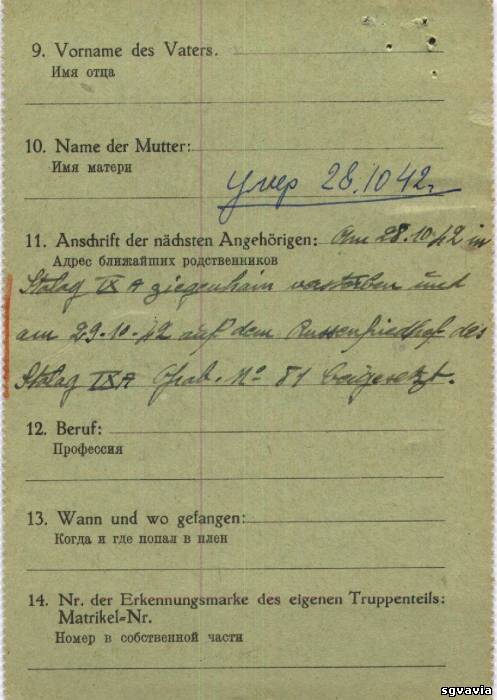 9. Vorname des Vaters.
Имя отца
10. Name der Mutter:
Имя матери
умер 28.10 42.
11. Anschrift der nächsten Angehörigen: Am 28.10.42 in
Адрес ближайших родственников
Stalag IX A Ziegenhain verstorben und
am 29.10.42 auf dem Russenfriedhof des
Stalag IXA Grab. No 81 beigesetzt.
12. Beruf:
Профессия
13. Wann und wo gefangen:
Когда и где попал в плен
14. Nr. der Erkennungsmarke des eigenen Truppenteils:
Matrikel=Nr.
Номер в собственной части
sgvavia